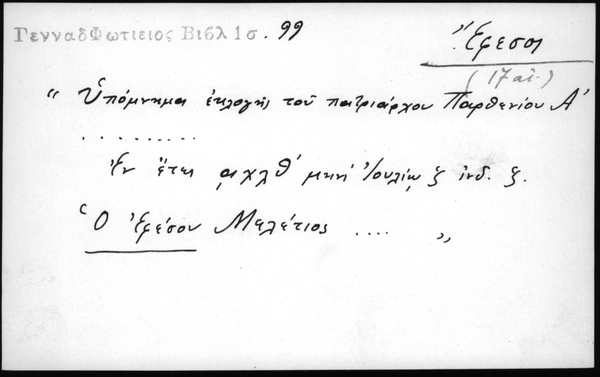 ΓενναδΦωτιειος Βιβλ 1σ. 99
Ἔφεσος
(17 αἰ.)
“ Ὑπόμνημα ἐκλογῆς τοῦ πατριάρχου Παρθενίου Α΄
. . . . . . . . .
Ἐν ἔτει ͵αχλθ΄ μηνὶ Ἰουλίῳ ζ ἰνδ. ζ.
Ὁ Ἐφέσου Μελέτιος .... „